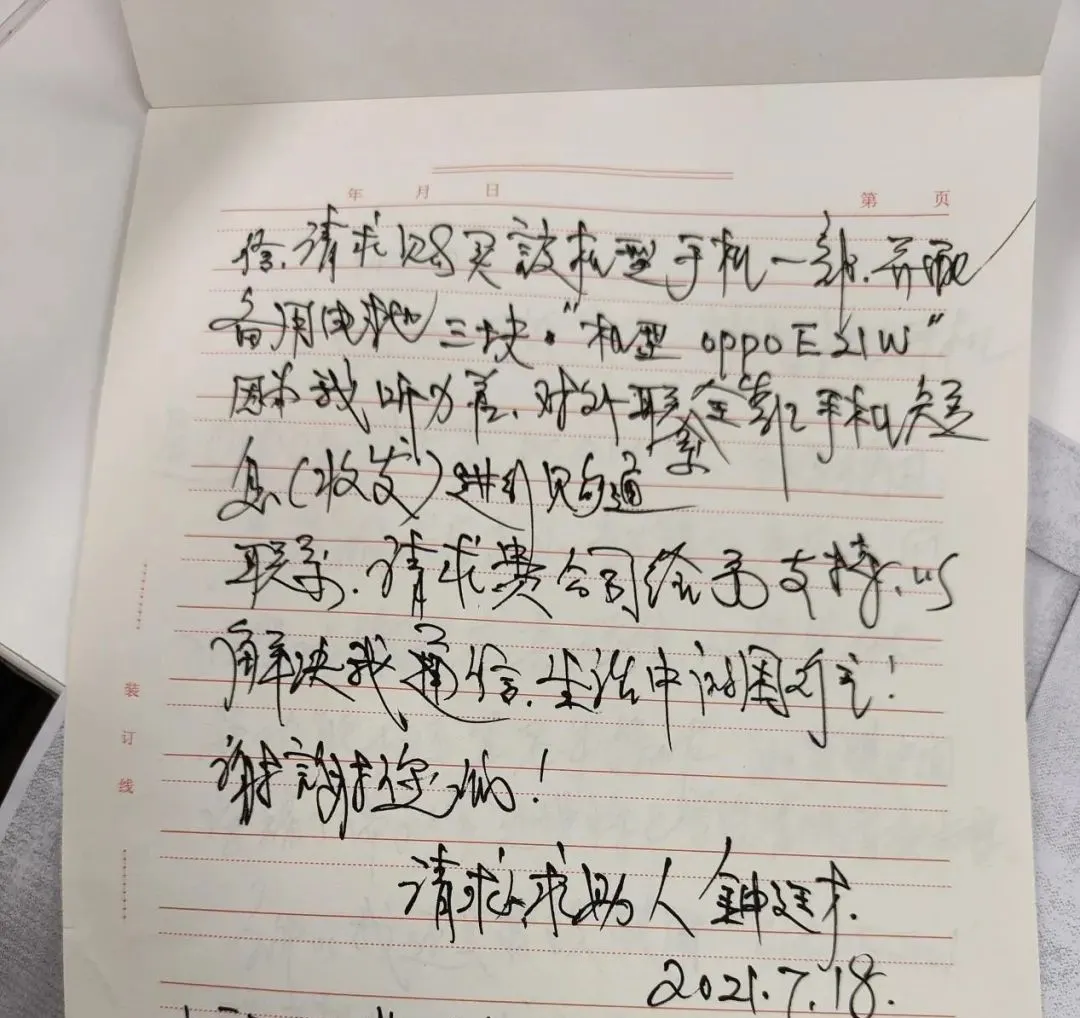 年 月 日
第 页
修.请求购买該机型手机一部.并配
备用电池三块."机型 oppo E21W"
因为我听力差.对外联系全靠手机短
息(收发)进行沟通
联系.请求贵公司给予支持.以
解决我通信.生活中的困难!
谢謝您的!
请求求助人 鈡廷才.
2021.7.18.
装订线